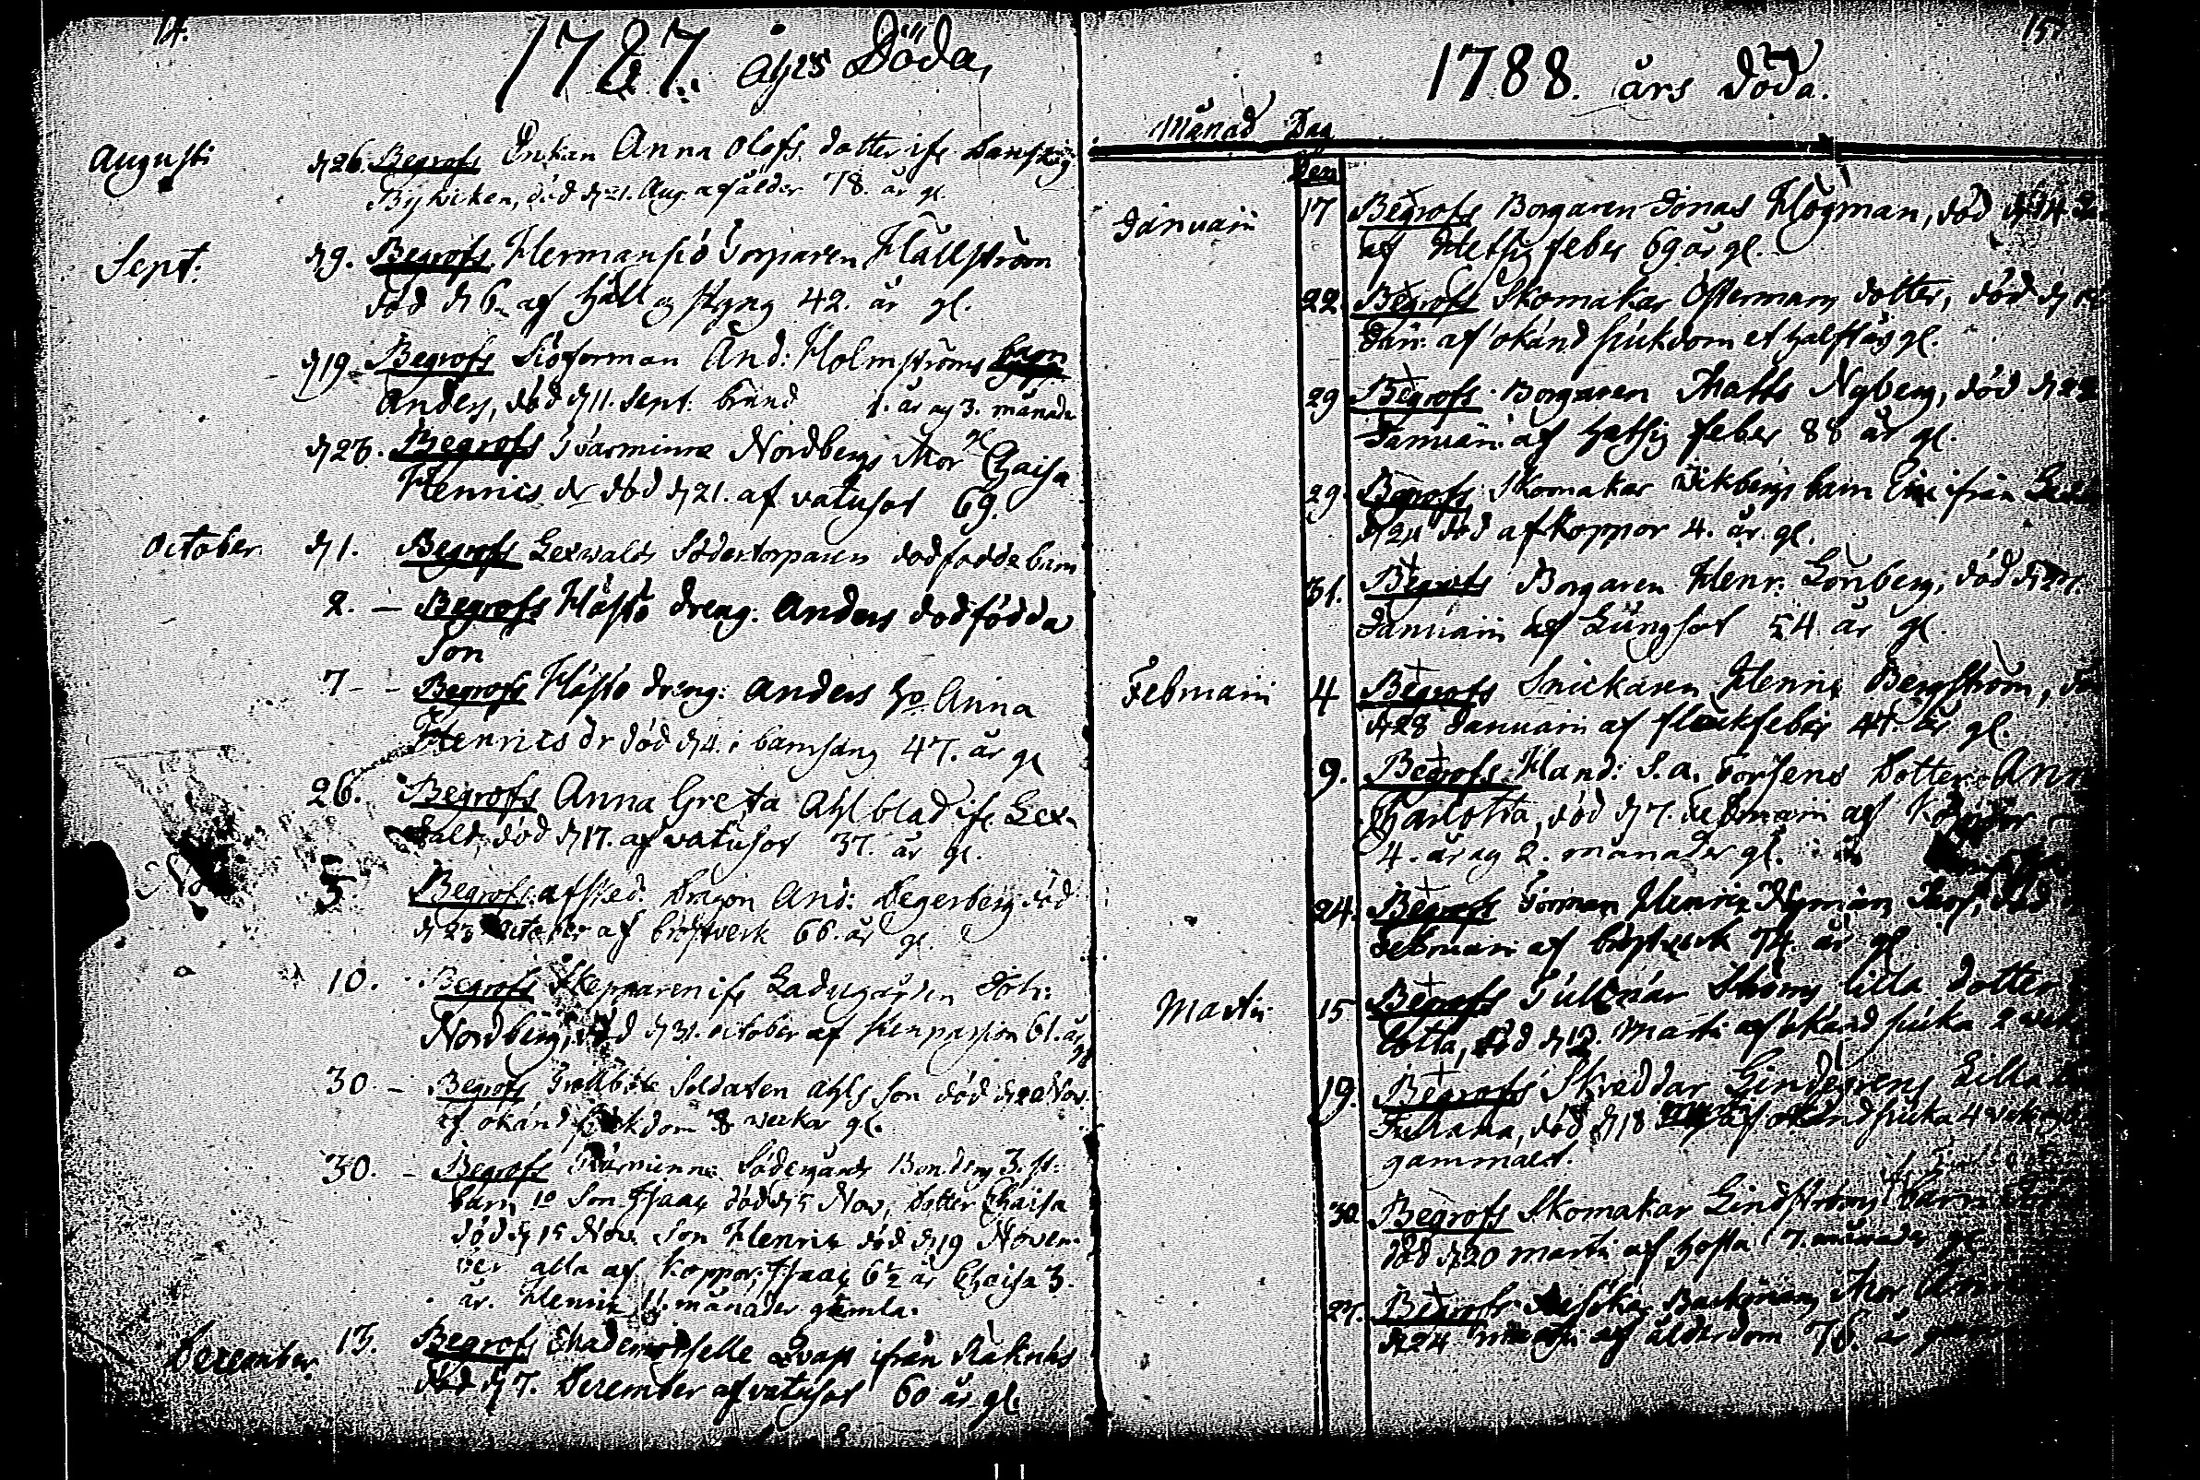 14.
1787. åhrs Döda,
Augusti d 26. Begrofs Enkan Anna Olofs dotter ifr Danskog
Bÿ wicken, död d 21. Aug. af ålder 78. år gl.
Sept. d 9. Begrofs Hermansiö Torparen Hällström
död d 6. af håll og styng 42. år gl.
d 19 Begrofs Siöforman And: Holmströms barn
Anders, död d 11. Sept: 1. år og 3. månader
d 23. Begrofs Tvärminne Nordbergs Mor Chaisa
Henrics dr död d 21. af vatusot 69.
October d 1. Begrofs Lexvalds Södertorparens dodfodde barn
2. — Begrofs Hästö dreng: Anders dodfödda
Son
7 - - Begrofs Hästö dreng: Anders Ho Anna
Henrics dr död d 4. i barnsäng 47. år gl
26. Begrofs Anna Greta Ahlblad ifr Lex-
vald, död d 17. af vatusot 37. år gl.
5 Begrofs afsked. Dragon And: Degerberg död
d 23 October af bröstverk 66. år gl.
10. Begrofs Skepparen ifr Ladugården Joh:
Nordberg, död d 31. october af stenpassion 61. år
gl
30. — Begrofs Soldaten Ahls Son död d 20 Nov.
af okänd siukdom 8 weckor gl.
30. — Begrofs Tvärminne Södergårds Bondens 3. st.
barn 1o Son Isaac död d 5 Nov, Dotter Chaisa
död d 15 Nov. Son Henric död d 19 Novem-
ber alla af koppor, Isaac 6½ år Chaisa 3.
år. Henric 11. månader gamla.
December. 13. Begrofs Mademoiselle Qvast ifrån
död d 7. December af vatusot 60 år gl.
15.
1788. års döda.
Månad Dag
Den
Januarii 17 Begrofs Borgaren Jonas Högman, död d 14
af Hetsig feber 69 år gl.
22. Begrofs Skomakar Östermans dotter, död d
Jan: af okänd siukdom et halft år gl.
29 Begrofs Borgaren Matts Nyberg, död d 22
Januarii af hetsig feber 88 år gl.
29. Begrofs Skomakar Wikbergs barn ifrån
d 24 död af koppor 4. år gl.
31. Begrofs Borgaren Henr: Lönberg, död d 27.
Januarii af Lungsot 54 år gl.
Februarii 4 Begrofs Snickaren Henric Bergström,
d 28 Januarii af fleckfeber 44. år gl.
9. Begrofs Hand: S.a. Forsens Dotter Ann
Charlotta, död d 7. Februarii af koppor
4. år og 2. månader gl.
24. Begrofs Forman Henric Nyman Mor, död
Februarii af bröstverk 74. år gl
Martii 15 Begrofs Tullnär Ströms lilla dotter
Lotta, död d 12. Martii af okänd siuka 2
19. Begrofs Skreddar Lindegrens Lilla
Juliana, död d 18 af okänd siuka 4
gammalt.
30 Begrofs Skomakar Lindströms barn
död d 20 martii af hosta 7. månader gl
27. Begrofs Backmans Mor Ann
d 24 martii af ålderdom 76. år